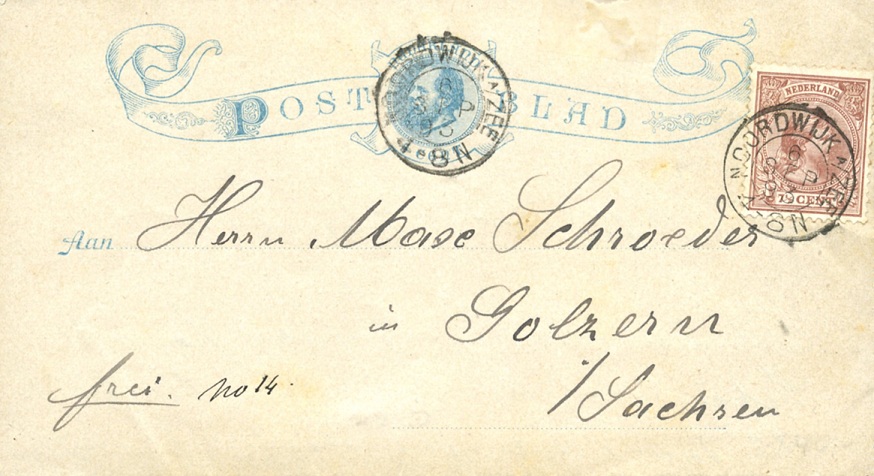 POSTBLAD
NOORDWIJK A/ZEE
6 SEP
4-8N
NEDERLAND
7½ CENT
NOORDWIJK A/ZEE
6 SEP 93
4-8N
Aan Herrn Max Schroeder
in Golzern
i/Sachsen
frei. No 14.